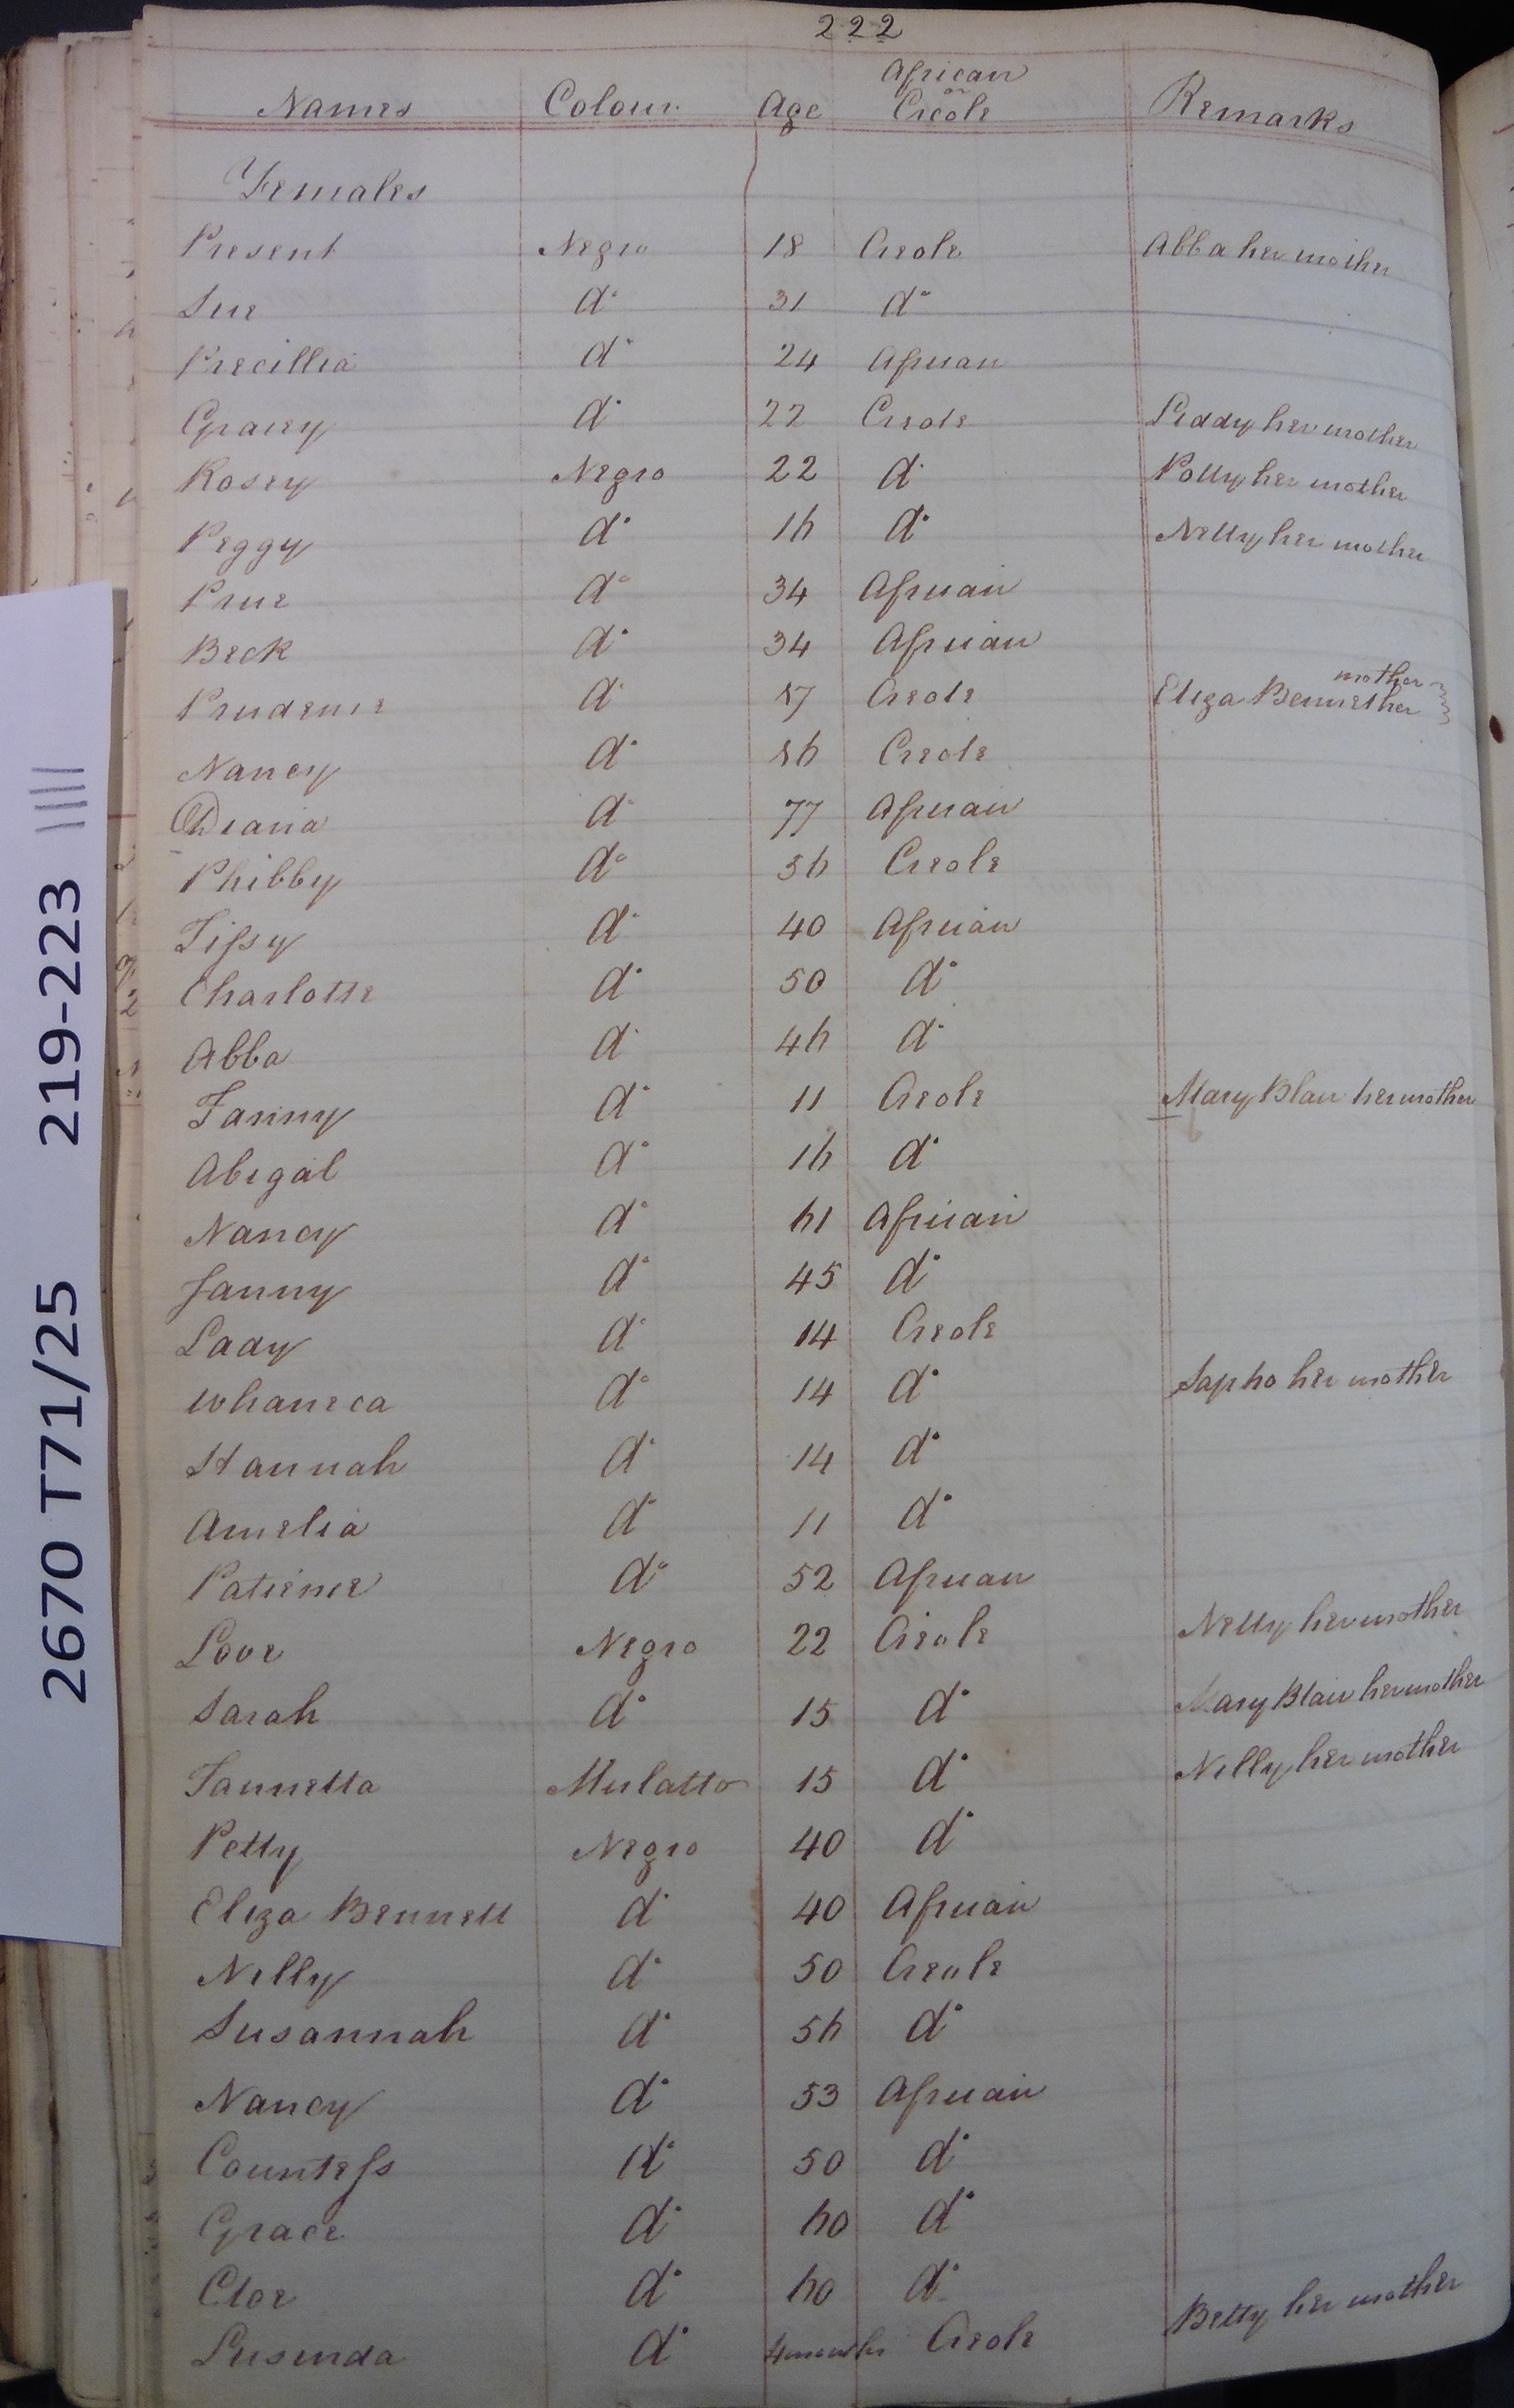 222
Names Colour Age African or Creole Remarks
Females
Present Negro 18 Creole Abba her mother
Sue do 31 do
Precillia do 24 African
Gracey do 22 Creole Liddy her mother
Rosey Negro 22 do Polly her mother
Peggy do 16 do Nelly her mother
Prue do 34 African
Beck do 34 African
Prudence do 17 Creole Eliza Bennet her mother
Nancy do 16 Creole
Diana do 77 African
Phibby do 36 Creole
Tissy do 40 African
Charlotte do 50 do
Abba do 46 do
Fanny do 11 Creole Mary Blair her mother
Abigal do 16 do
Nancy do 61 African
Fanny do 45 do
Lady do 14 Creole
Whaneca do 14 do Sapho her mother
Hannah do 14 do
Amelia do 11 do
Patience do 52 African
Love Negro 22 Creole Nelly her mother
Sarah do 15 do Mary Blair her mother
Jannetta Mulatto 15 do Nelly her mother
Petty Negro 40 do
Eliza Bennett do 40 African
Nelly do 50 Creole
Susannah do 56 do
Nancy do 53 African
Countess do 50 do
Grace do 60 do
Cloe do 60 do
Lusinda do 4 months Creole Betty her mother
2670 T71/25 219-223